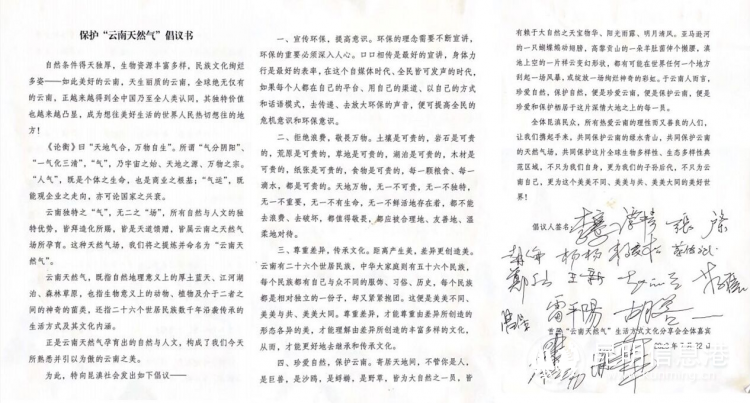 保护“云南天然气”倡议书
自然条件得天独厚,生物资源丰富多样,民族文化绚烂
多姿——如此美好的云南,天生丽质的云南,全球绝无仅有
的云南,正越来越得到全中国乃至全人类认同,其独特价值
也越来越凸显,成为想往美好生活的世界人民热切想往的地
方!
《论衡》曰“天地气合,万物自生”。所谓“气分阴阳”、
“一气化三清”,“气”,乃宇宙之始、天地之源、万物之宗。
“人气”,既是个体之生命,也是商业之根基;“气运”,既
能观企业之走向,亦可论国家之兴衰。
云南独特之“气”,无二之“场”,所有自然与人文的独
特优势,皆拜造化所赐、皆是天道馈赠,皆属云南之天然气
场所孕育。这种天然气场,我们将之提炼并命名为“云南天
然气”。
云南天然气,既指自然地理意义上的厚土蓝天、江河湖
泊、森林草原,也指生物意义上的动物、植物及介于二者之
间的神奇的菌类,还指二十六个世居民族数千年沿袭传承的
生活方式及其文化内涵。
正是云南天然气孕育出的自然与人文,构成了我们今天
所熟悉并引以为傲的云南之美。
为此,特向昆滇社会发出如下倡议——
一、宣传环保,提高意识。环保的理念需要不断宣讲,
环保的重要必须深入人心。口口相传是最好的宣讲,身体力
行是最好的表率,在这个自媒体时代、全民皆可发声的时代,
如果每个人都在自己的平台、用自己的渠道、以自己的方式
和话语模式,去传递、去放大环保的声音,便可提高全民的
危机意识和环保意识。
二、拒绝浪费,敬畏万物。土壤是可贵的,岩石是可贵
的,荒原是可贵的,草地是可贵的,湖泊是可贵的,木材是
可贵的,纸张是可贵的,食物是可贵的,每一颗粮食、每一
滴水,都是可贵的。天地万物,无一不可贵,无一不独特,
无一不重要,无一不有生命,无一不鲜活地存在着,都不能
去浪费、去破坏,都值得敬畏,都应被合理地、友善地、温
柔地对待。
三、尊重差异,传承文化。距离产生美,差异更创造美。
云南有二十六个世居民族,中华大家庭则有五十六个民族,
每个民族都有自己与众不同的服饰、习俗、历史,每个民族
都是相对独立的一份子,却又紧紧抱团。这便是美美不同、
美美与共、美美大同。尊重差异,才能尊重由差异所创造的
形态各异的美,才能理解由差异所创造的丰富多样的文化,
从而,才能更好地去继承和传承文化。
四、珍爱自然,保护云南。寄居天地间,不管你是人,
是巨兽,是沙鸥,是蜉蝣,是野草,皆为大自然之一员,皆
有赖于大自然之天宝物华、阳光雨露、明月清风。亚马逊河
的一只蝴蝶煽动翅膀,高黎贡山的一朵羊肚菌伸个懒腰,滇
池上空的一片祥云变幻形状,都有可能在世界任何一个地方
刮起一场风暴、或绽放一场绚烂神奇的彩虹。于云南人而言,
珍爱自然,保护自然,便是珍爱云南,便是保护云南,便是
珍爱和保护栖居于这片深情大地之上的每一员。
全体昆滇民众,所有热爱云南的理性而又善良的人们,
让我们携起手来,共同保护云南的绿水青山,共同保护云南
的天然气场,共同保护这片全球生物多样性、生态多样性典
范区域,不只为我们自身,更为我们的子孙后代,不只为云
南自己,更为这个美美不同、美美与共、美美大同的美好世
界!
倡议人签名:
雷平阳
“云南天然气”生活方式文化分享会全体嘉宾